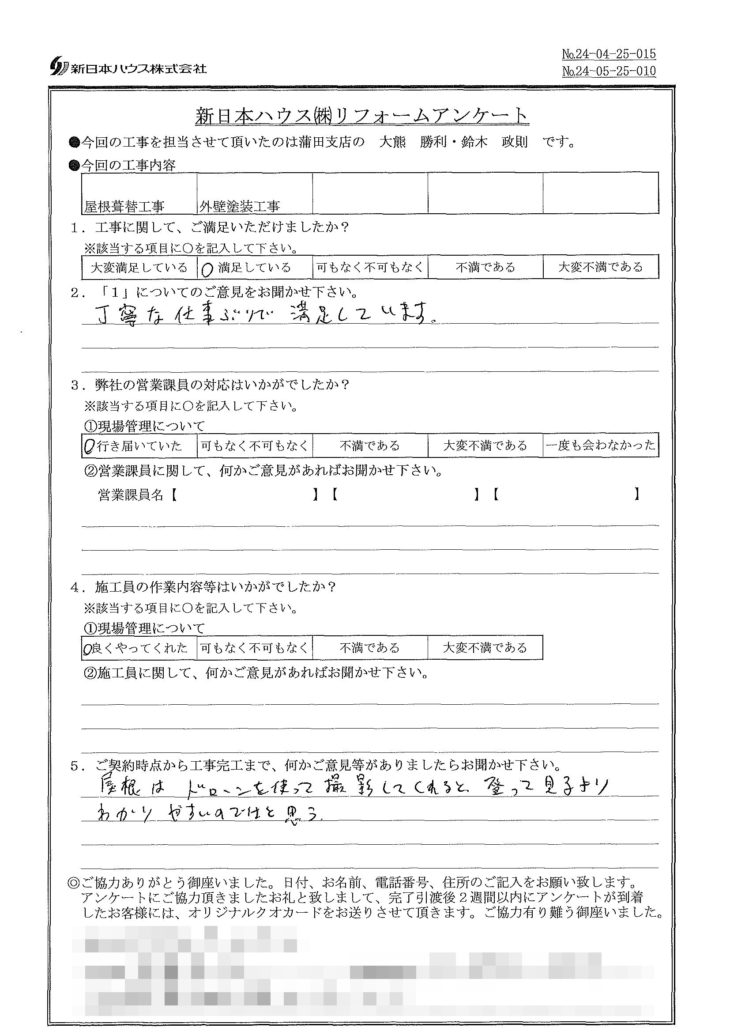 新日本ハウス株式会社
№24-04-25-015
№24-05-25-010
新日本ハウス㈱リフォームアンケート
●今回の工事を担当させて頂いたのは蒲田支店の　大熊　勝利・鈴木　政則　です。
●今回の工事内容
屋根葺替工事　外壁塗装工事
１．工事に関して、ご満足いただけましたか？
※該当する項目に〇を記入して下さい。
大変満足している　〇満足している　可もなく不可もなく　不満である　大変不満である
２．「１」についてのご意見をお聞かせ下さい。
丁寧な仕事ぶりで満足しています。
３．弊社の営業課員の対応はいかがでしたか？
※該当する項目に〇を記入して下さい。
①現場管理について
〇行き届いていた　可もなく不可もなく　不満である　大変不満である　一度も会わなかった
②営業課員に関して、何かご意見があればお聞かせ下さい。
営業課員名【　】【　】【　】
４．施工員の作業内容等はいかがでしたか？
※該当する項目に〇を記入して下さい。
①現場管理について
〇良くやってくれた　可もなく不可もなく　不満である　大変不満である
②施工員に関して、何かご意見があればお聞かせ下さい。
５．ご契約時点から工事完工まで、何かご意見等がありましたらお聞かせ下さい。
屋根はドローンを使って撮影してくれると、登って見るより
わかりやすいのではと思う。
◎ご協力ありがとう御座いました。日付、お名前、電話番号、住所のご記入をお願い致します。
アンケートにご協力頂きましたお礼と致しまして、完了引渡後２週間以内にアンケートが到着
したお客様には、オリジナルクオカードをお送りさせて頂きます。ご協力有り難う御座いました。